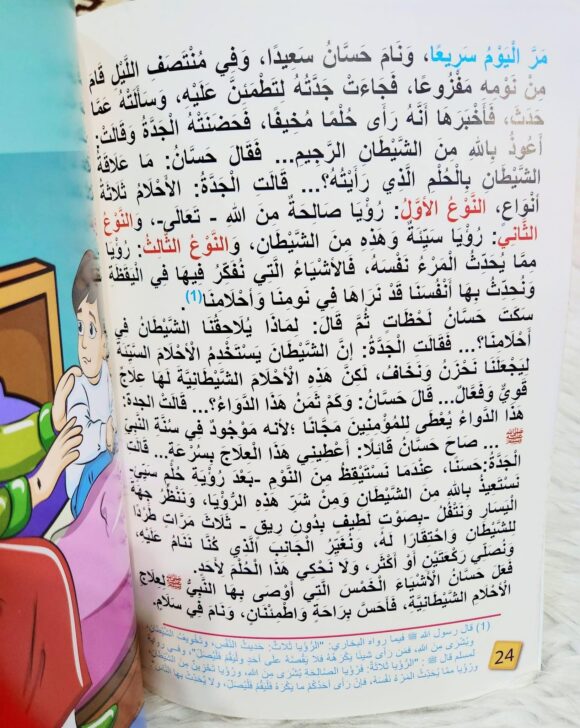 مَرَّ الْيَوْمُ سَرِيعًا، وَنَامَ حَسَّانُ سَعِيدًا، وَفِي مُنْتَصَفِ اللَّيْلِ قَامَ
مِنْ نَوْمِهِ مَفْزُوعًا، فَجَاءَتْ جَدَّتُهُ لِتَطْمَئِنَّ عَلَيْهِ، وَسَأَلَتْهُ عَمَّا
حَدَثَ، فَأَخْبَرَهَا أَنَّهُ رَأَى حُلْمًا مُخِيفًا، فَحَضَنَتْهُ الْجَدَّةُ وَقَالَتْ:
أَعُوذُ بِاللهِ مِنَ الشَّيْطَانِ الرَّجِيمِ... فَقَالَ حَسَّانُ: مَا عَلَاقَةُ
الشَّيْطَانِ بِالْحُلْمِ الَّذِي رَأَيْتُهُ؟... قَالَتِ الْجَدَّةُ: الْأَحْلَامُ ثَلَاثَةُ
أَنْوَاعٍ، النَّوْعُ الْأَوَّلُ: رُؤْيَا صَالِحَةٌ مِنَ اللهِ - تَعَالَى-، وَالنَّوْعُ
الثَّانِي: رُؤْيَا سَيِّئَةٌ وَهَذِهِ مِنَ الشَّيْطَانِ، وَالنَّوْعُ الثَّالِثُ: رُؤْيَا
مِمَّا يُحَدِّثُ الْمَرْءُ نَفْسَهُ، فَالْأَشْيَاءُ الَّتِي نُفَكِّرُ فِيهَا فِي الْيَقَظَةِ
وَنُحَدِّثُ بِهَا أَنْفُسَنَا قَدْ نَرَاهَا فِي نَوْمِنَا وَأَحْلَامِنَا(1).
سَكَتَ حَسَّانُ لَحَظَاتٍ ثُمَّ قَالَ: لِمَاذَا يُلَاحِقُنَا الشَّيْطَانُ فِي
أَحْلَامِنَا؟... فَقَالَتِ الْجَدَّةُ: إِنَّ الشَّيْطَانَ يَسْتَخْدِمُ الْأَحْلَامَ السَّيِّئَةَ
لِيَجْعَلَنَا نَحْزَنُ وَنَخَافُ، لَكِنَّ هَذِهِ الْأَحْلَامَ الشَّيْطَانِيَّةَ لَهَا عِلَاجٌ
قَوِيٌّ وَفَعَّالٌ... قَالَ حَسَّانُ: وَكَمْ ثَمَنُ هَذَا الدَّوَاءِ؟... قَالَتِ الْجَدَّةُ:
هَذَا الدَّوَاءُ يُعْطَى لِلْمُؤْمِنِينَ مَجَّانًا؛ لِأَنَّهُ مَوْجُودٌ فِي سُنَّةِ النَّبِيِّ
ﷺ ... صَاحَ حَسَّانُ قَائِلًا: أَعْطِينِي هَذَا الْعِلَاجَ بِسُرْعَةٍ... قَالَتِ
الْجَدَّةُ: حَسَنًا، عِنْدَمَا نَسْتَيْقِظُ مِنَ النَّوْمِ -بَعْدَ رُؤْيَةِ حُلْمٍ سَيِّئٍ-
نَسْتَعِيذُ بِاللهِ مِنَ الشَّيْطَانِ وَمِنْ شَرِّ هَذِهِ الرُّؤْيَا، وَنَنْظُرُ جِهَةَ
الْيَسَارِ وَنَتْفُلُ -بِصَوْتٍ لَطِيفٍ بِدُونِ رِيقٍ - ثَلَاثَ مَرَّاتٍ طَرْدًا
لِلشَّيْطَانِ وَاحْتِقَارًا لَهُ، وَنُغَيِّرُ الْجَانِبَ الَّذِي كُنَّا نَنَامُ عَلَيْهِ،
وَنُصَلِّي رَكْعَتَيْنِ أَوْ أَكْثَرَ، وَلَا نَحْكِي هَذَا الْحُلْمَ لِأَحَدٍ.
فَعَلَ حَسَّانُ الْأَشْيَاءَ الْخَمْسَ الَّتِي أَوْصَى بِهَا النَّبِيُّ ﷺ لِعِلَاجِ
الْأَحْلَامِ الشَّيْطَانِيَّةِ، فَأَحَسَّ بِرَاحَةٍ وَاطْمِئْنَانٍ، وَنَامَ فِي سَلَامٍ.
(1) قال رسول الله ﷺ فيما رواه البخاري: "الرُّؤْيَا ثَلَاثٌ: حَدِيثُ النَّفْسِ، وَتَخْوِيفُ الشَّيْطَانِ،
وَبُشْرَى مِنَ اللهِ، فَمَنْ رَأَى شَيْئًا يَكْرَهُهُ فَلَا يَقُصَّهُ عَلَى أَحَدٍ وَلْيَقُمْ فَلْيُصَلِّ"، وفي رواية
لمسلم قال ﷺ: "الرُّؤْيَا ثَلَاثَةٌ: فَرُؤْيَا الصَّالِحَةِ بُشْرَى مِنَ اللهِ، وَرُؤْيَا تَحْزِينٌ مِنَ الشَّيْطَانِ،
وَرُؤْيَا مِمَّا يُحَدِّثُ الْمَرْءُ نَفْسَهُ، فَإِنْ رَأَى أَحَدُكُمْ مَا يَكْرَهُ فَلْيَقُمْ فَلْيُصَلِّ، وَلَا يُحَدِّثْ بِهَا النَّاسَ"
24